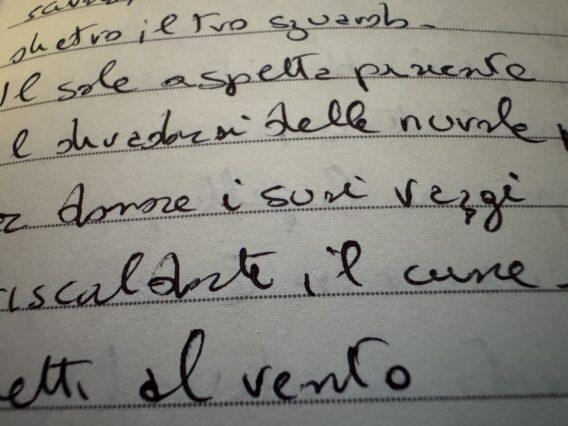 dietro il tuo sguardo.
Il sole aspetta paziente
il diradarsi delle nuvole
donare i suoi raggi
riscaldarti il cuore.
al vento